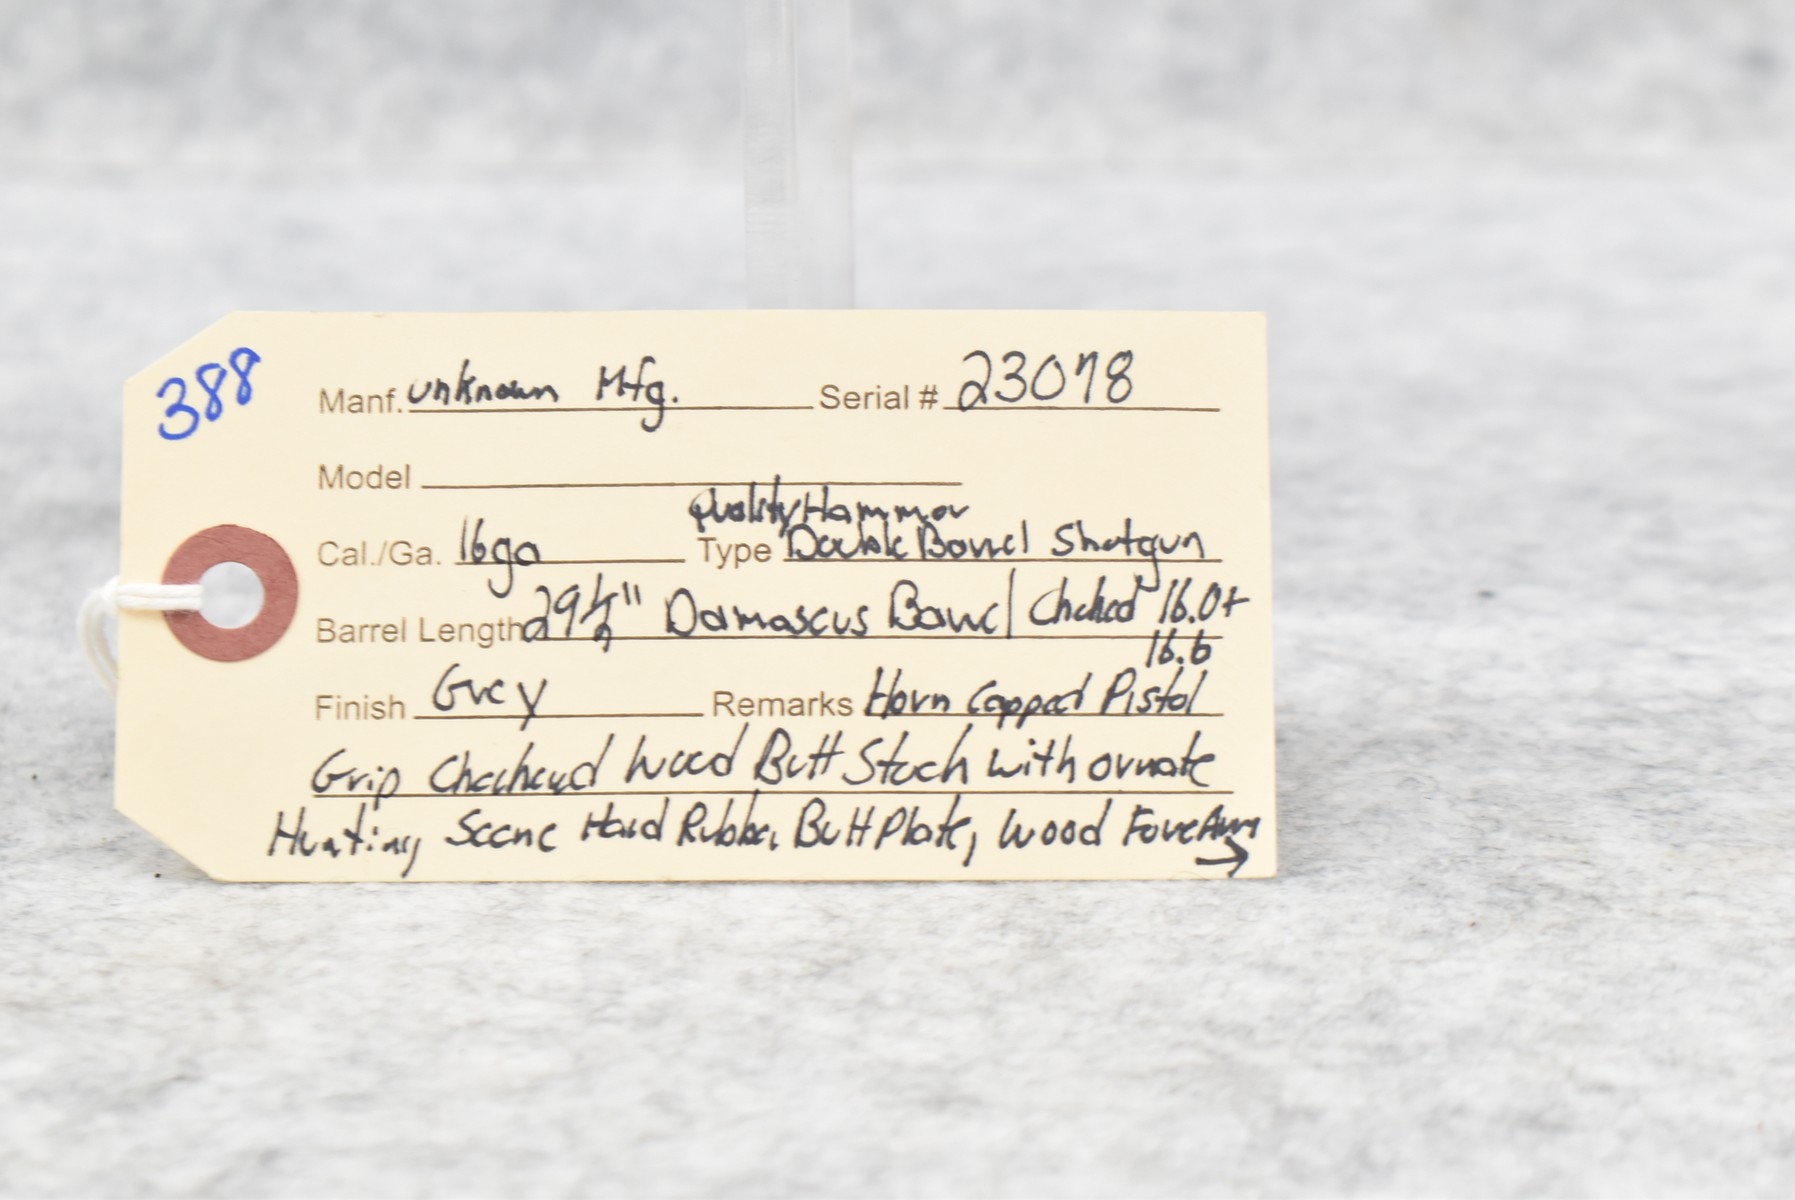 388
Manf. unknown Mfg. Serial # 23078
Model
Quality Hammer
Cal./Ga. 16ga Type Double Barrel Shotgun
Barrel Length 29½" Damascus Barrel Choked 16.0+
16.6
Finish Grey Remarks Horn Capped Pistol
Grip Checkered Wood Butt Stock with ornate
Hunting Scene Hard Rubber Butt Plate, Wood ForeArm
→